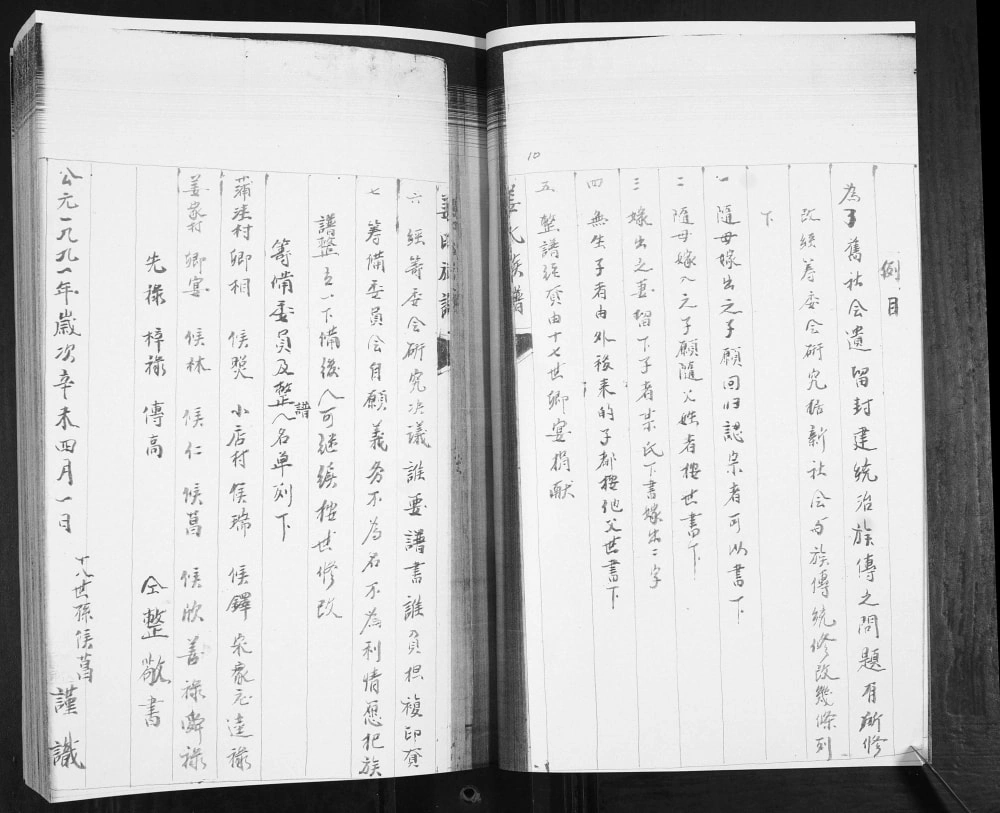 10
例目
為了舊社会遺留封建統治族傳之問題有所修
改經筹委会研究据新社会与族傳統修改幾條列
下
一 隨母嫁出之子願回归認宗者可以書下
二 隨母嫁入之子願隨父姓者按世書下
三 嫁出之妻留下子者某氏下書嫁出二字
四 無生子者由外後来的子都按他父世書下
五 整譜经費由十七世卿宴捐献
姜氏族譜
六 經筹委会研究决議誰要譜書誰負担複印費
七 筹備委員会自願義务不為名不為利情愿把族
譜整立一下備後人可继續按世修改
筹備委員及整譜人名单列下
蒲洼村 卿相 候 小店村 侯瑞 候鐸 宋家 達禄
姜家村 卿宴 候林 候仁 候菖 候欣 善禄 舜禄
先禄 梓禄 傳高 仝整敬書
公元一九九一年歲次辛未四月一日 十八世孫候菖 謹識